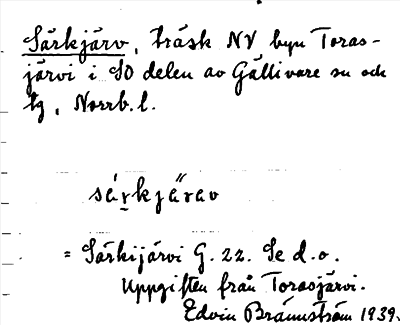 Särkjärv, träsk NV byn Toras-
järvi i SO delen av Gällivare sn och
tg, Norrb. l.
sárkjā̋rav
= Särkijärvi G. 22. Se d. o.
Uppgiften från Torasjärvi.
Edvin Brännström 1939.